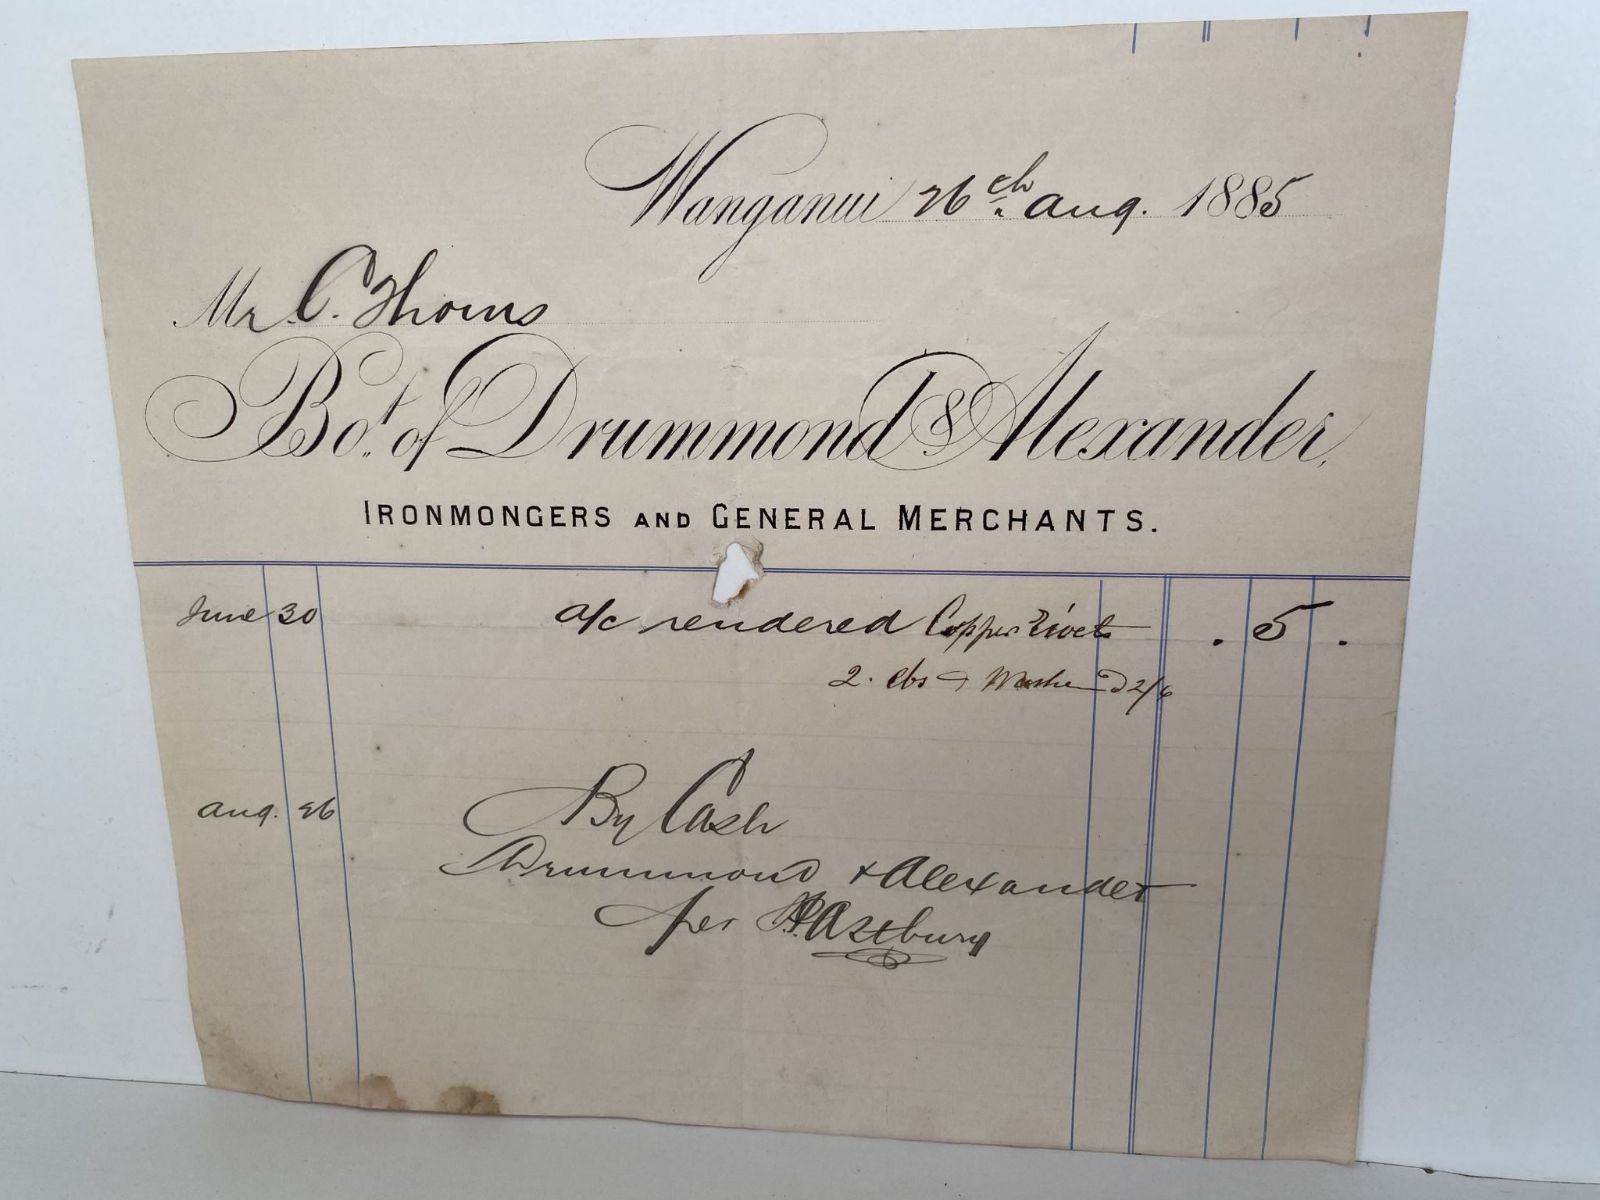 Wanganui 26th Aug. 1885
Mr. C. Thoms
Bot. of Drummond & Alexander,
IRONMONGERS AND GENERAL MERCHANTS.
June 30 a/c rendered Copper Rivets . 5 .
2. lbs & Washers @ 2/6
Aug. 26 By Cash
Drummond & Alexander
per